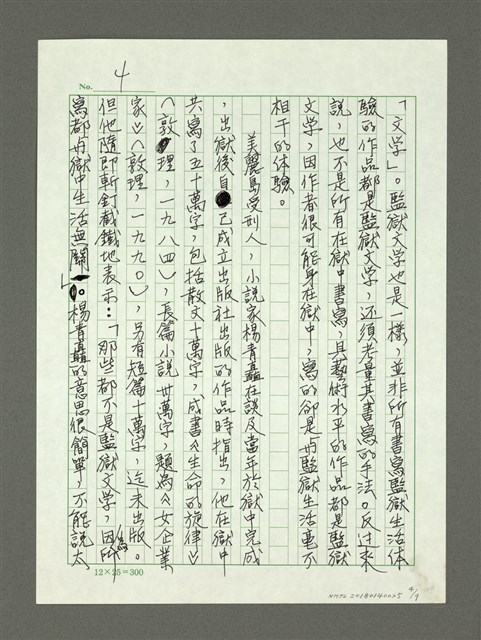 No. 4
「文学」。監獄文学也是一樣,並非所有書寫監獄生活体
驗的作品都是監獄文学,还須考量其書寫的手法。反过來
説,也不是所有在獄中書寫,具藝術水平的作品都是監獄
文学,因作者很可能身在獄中,寫的卻是與監獄生活毫不
相干的体驗。
美麗島受刑人,小説家楊青矗在談及當年於獄中完成
,出獄後自己成立出版社出版的作品時指出,他在獄中
共寫了五十萬字,包括散文十萬字,成書《生命的旋律》
(敦理,一九八四),長篇小説卅萬字,題為《女企業
家》(敦理,一九九〇),另有短篇十萬字,迄未出版。
但他隨即斬釘截鐵地表示:「那些都不是監獄文学,因為所
寫都與獄中生活無關」。楊青矗的意思很簡單,不能説太
12×25=300
NMTL20180140025
4/9